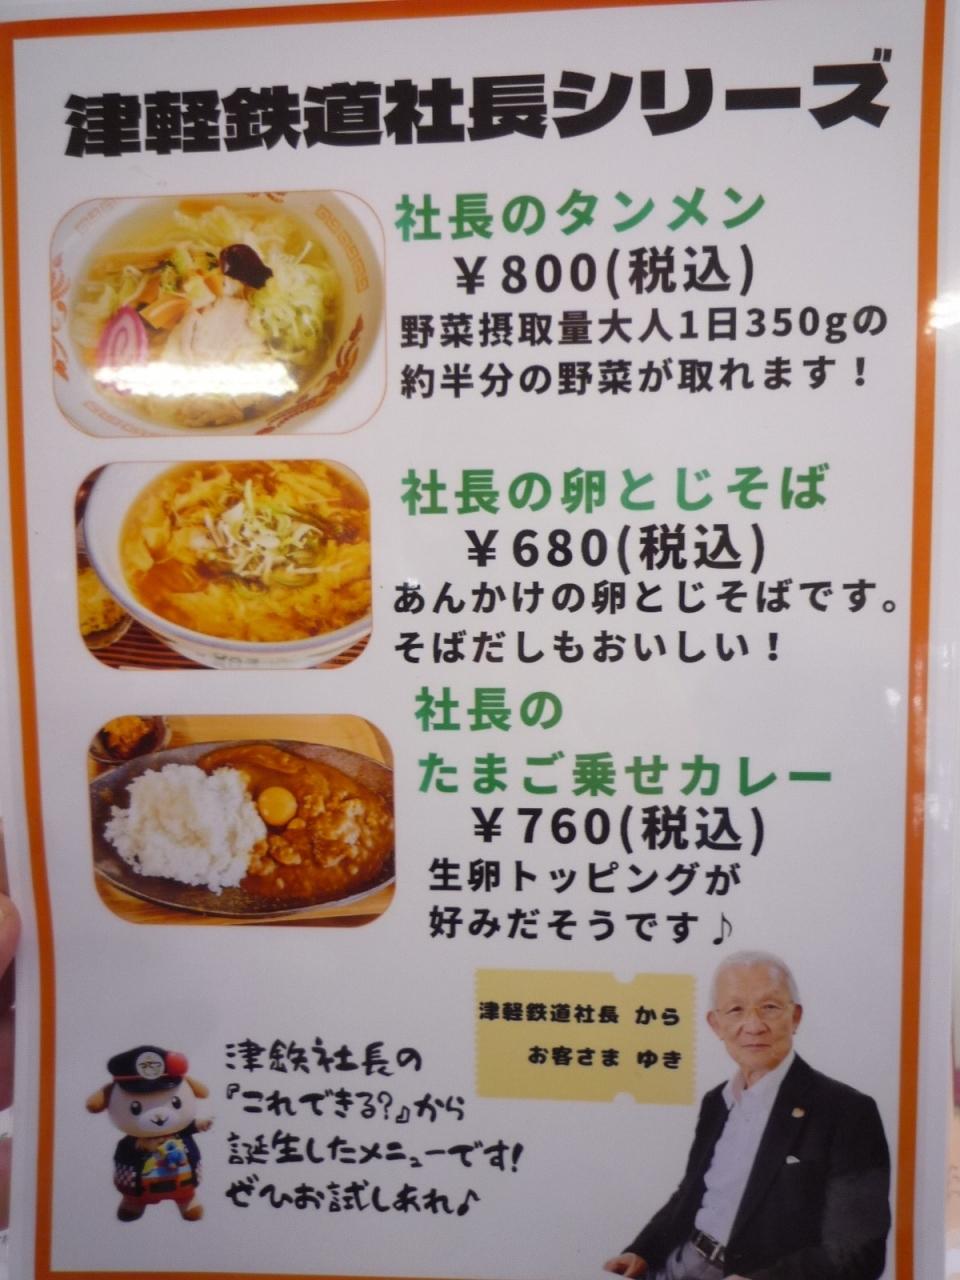 津軽鉄道社長シリーズ
社長のタンメン
￥800(税込)
野菜摂取量大人1日350gの
約半分の野菜が取れます！
社長の卵とじそば
￥680(税込)
あんかけの卵とじそばです。
そばだしもおいしい！
社長の
たまご乗せカレー
￥760(税込)
生卵トッピングが
好みだそうです♪
津軽鉄道社長 から
お客さま ゆき
津鉄社長の
『これできる?』から
誕生したメニューです!
ぜひお試しあれ♪